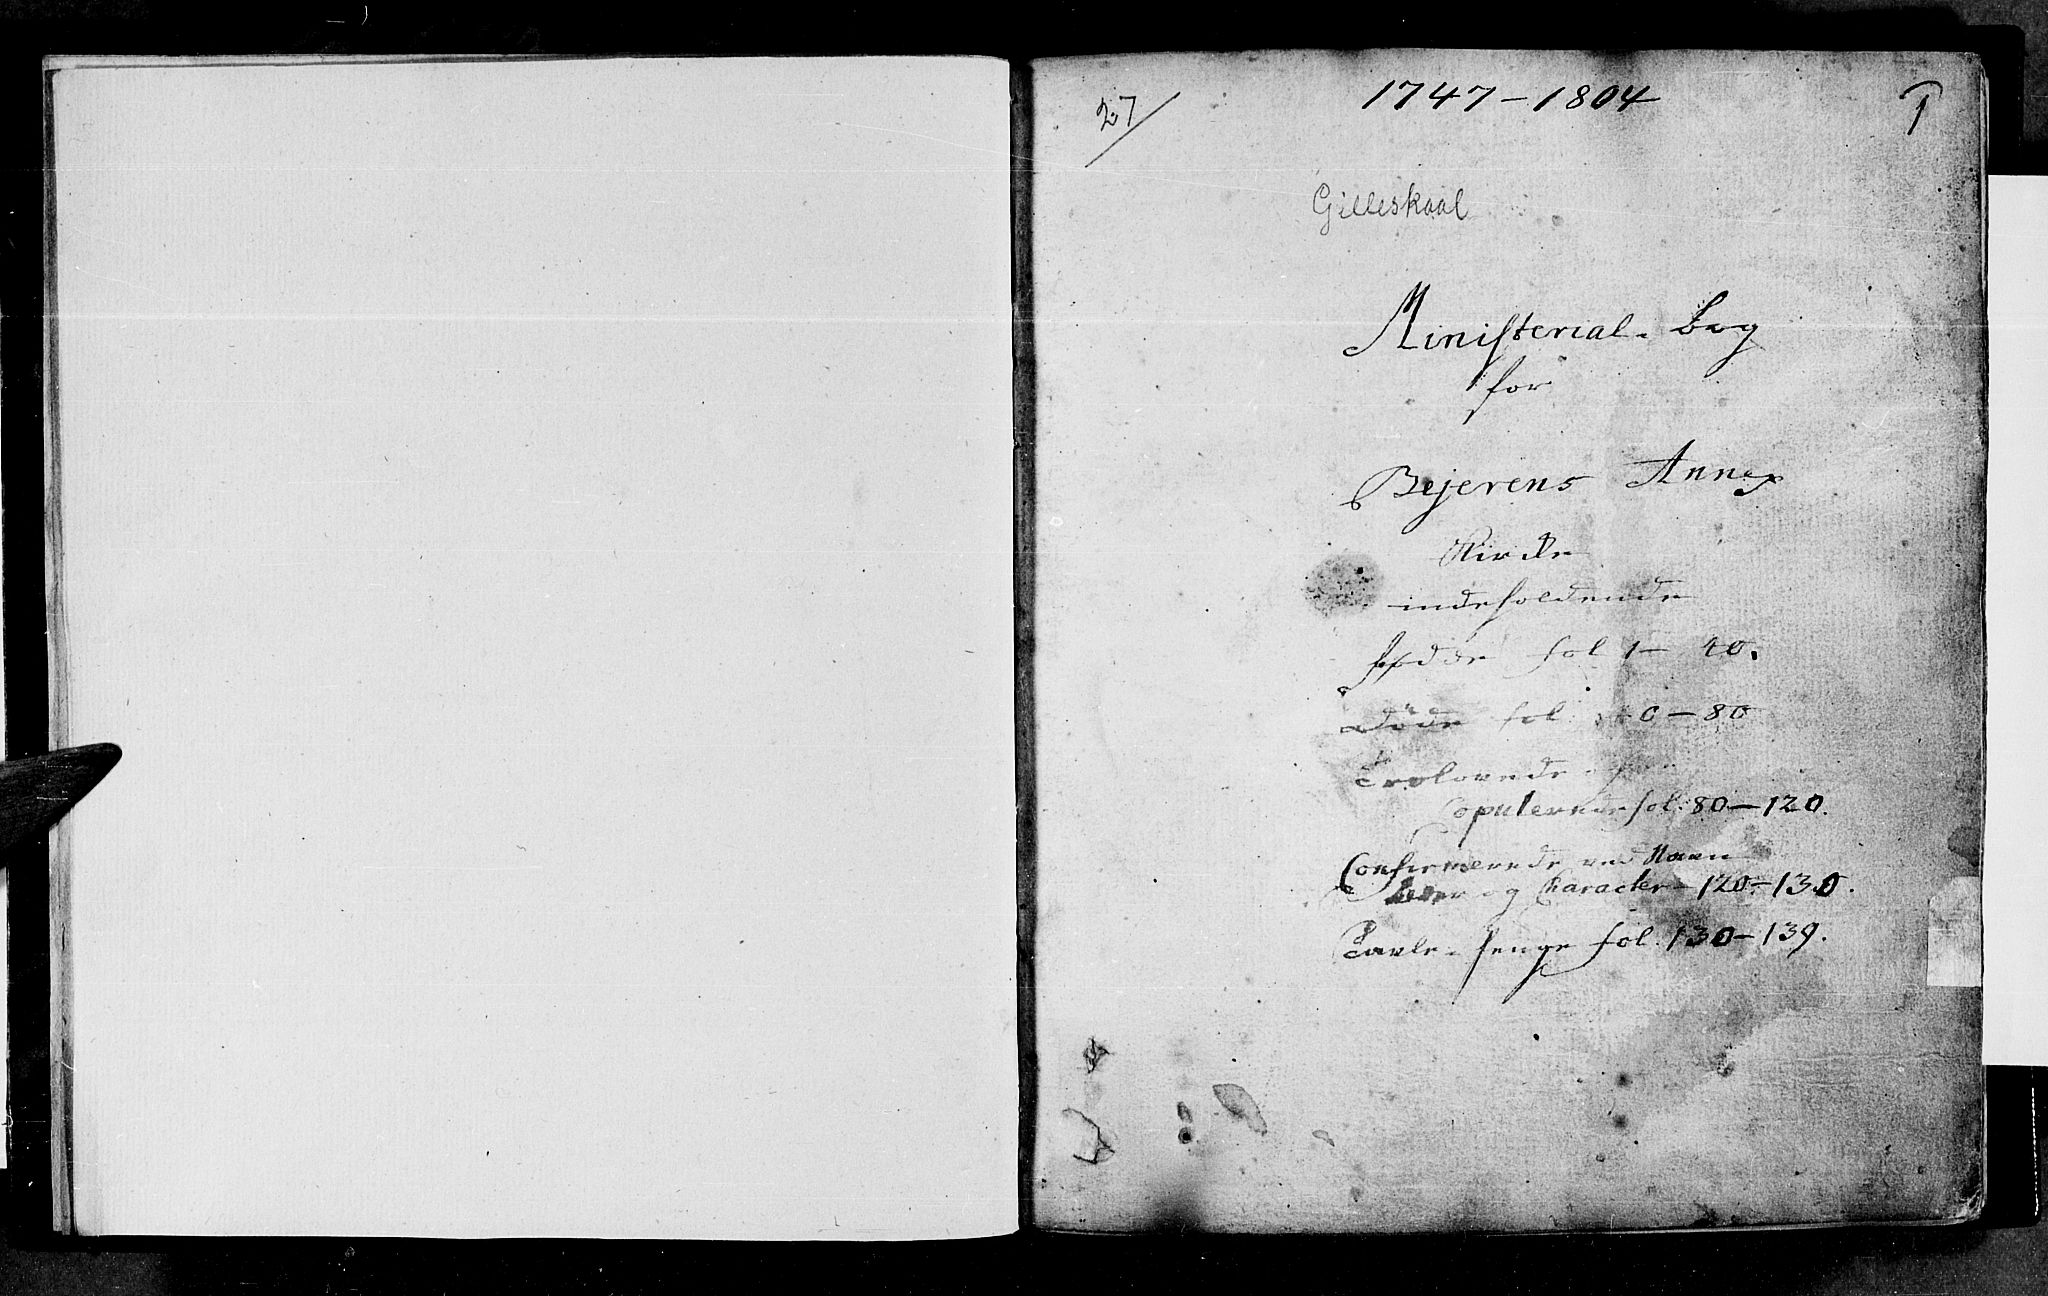 27/
1747-1804
1
Gilleskaal
Ministerial-Bog
for
Bejerens Annex
Kirke
indeholdende
Fødde fol 1- 40.
Døde fol 40-80
Trolovede
Copulerede fol. 80-120.
Confirmerede ved Navn
og Character-120-130.
Tavle-Penge fol. 130-139.